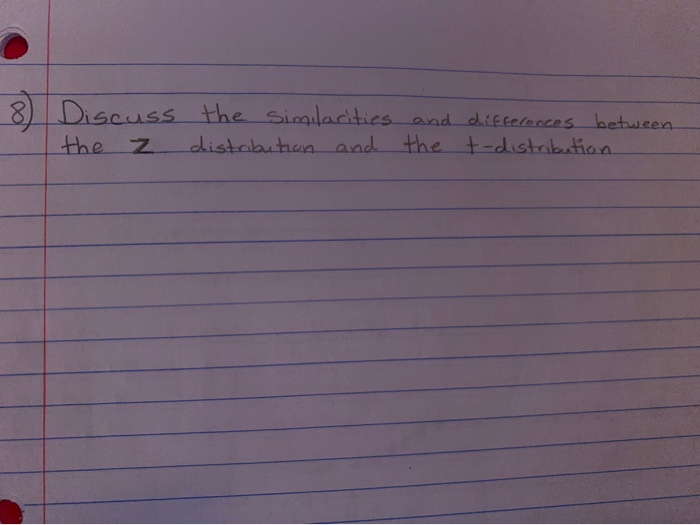 8) Discuss the similarities and differences between
the Z distribution and the t-distribution